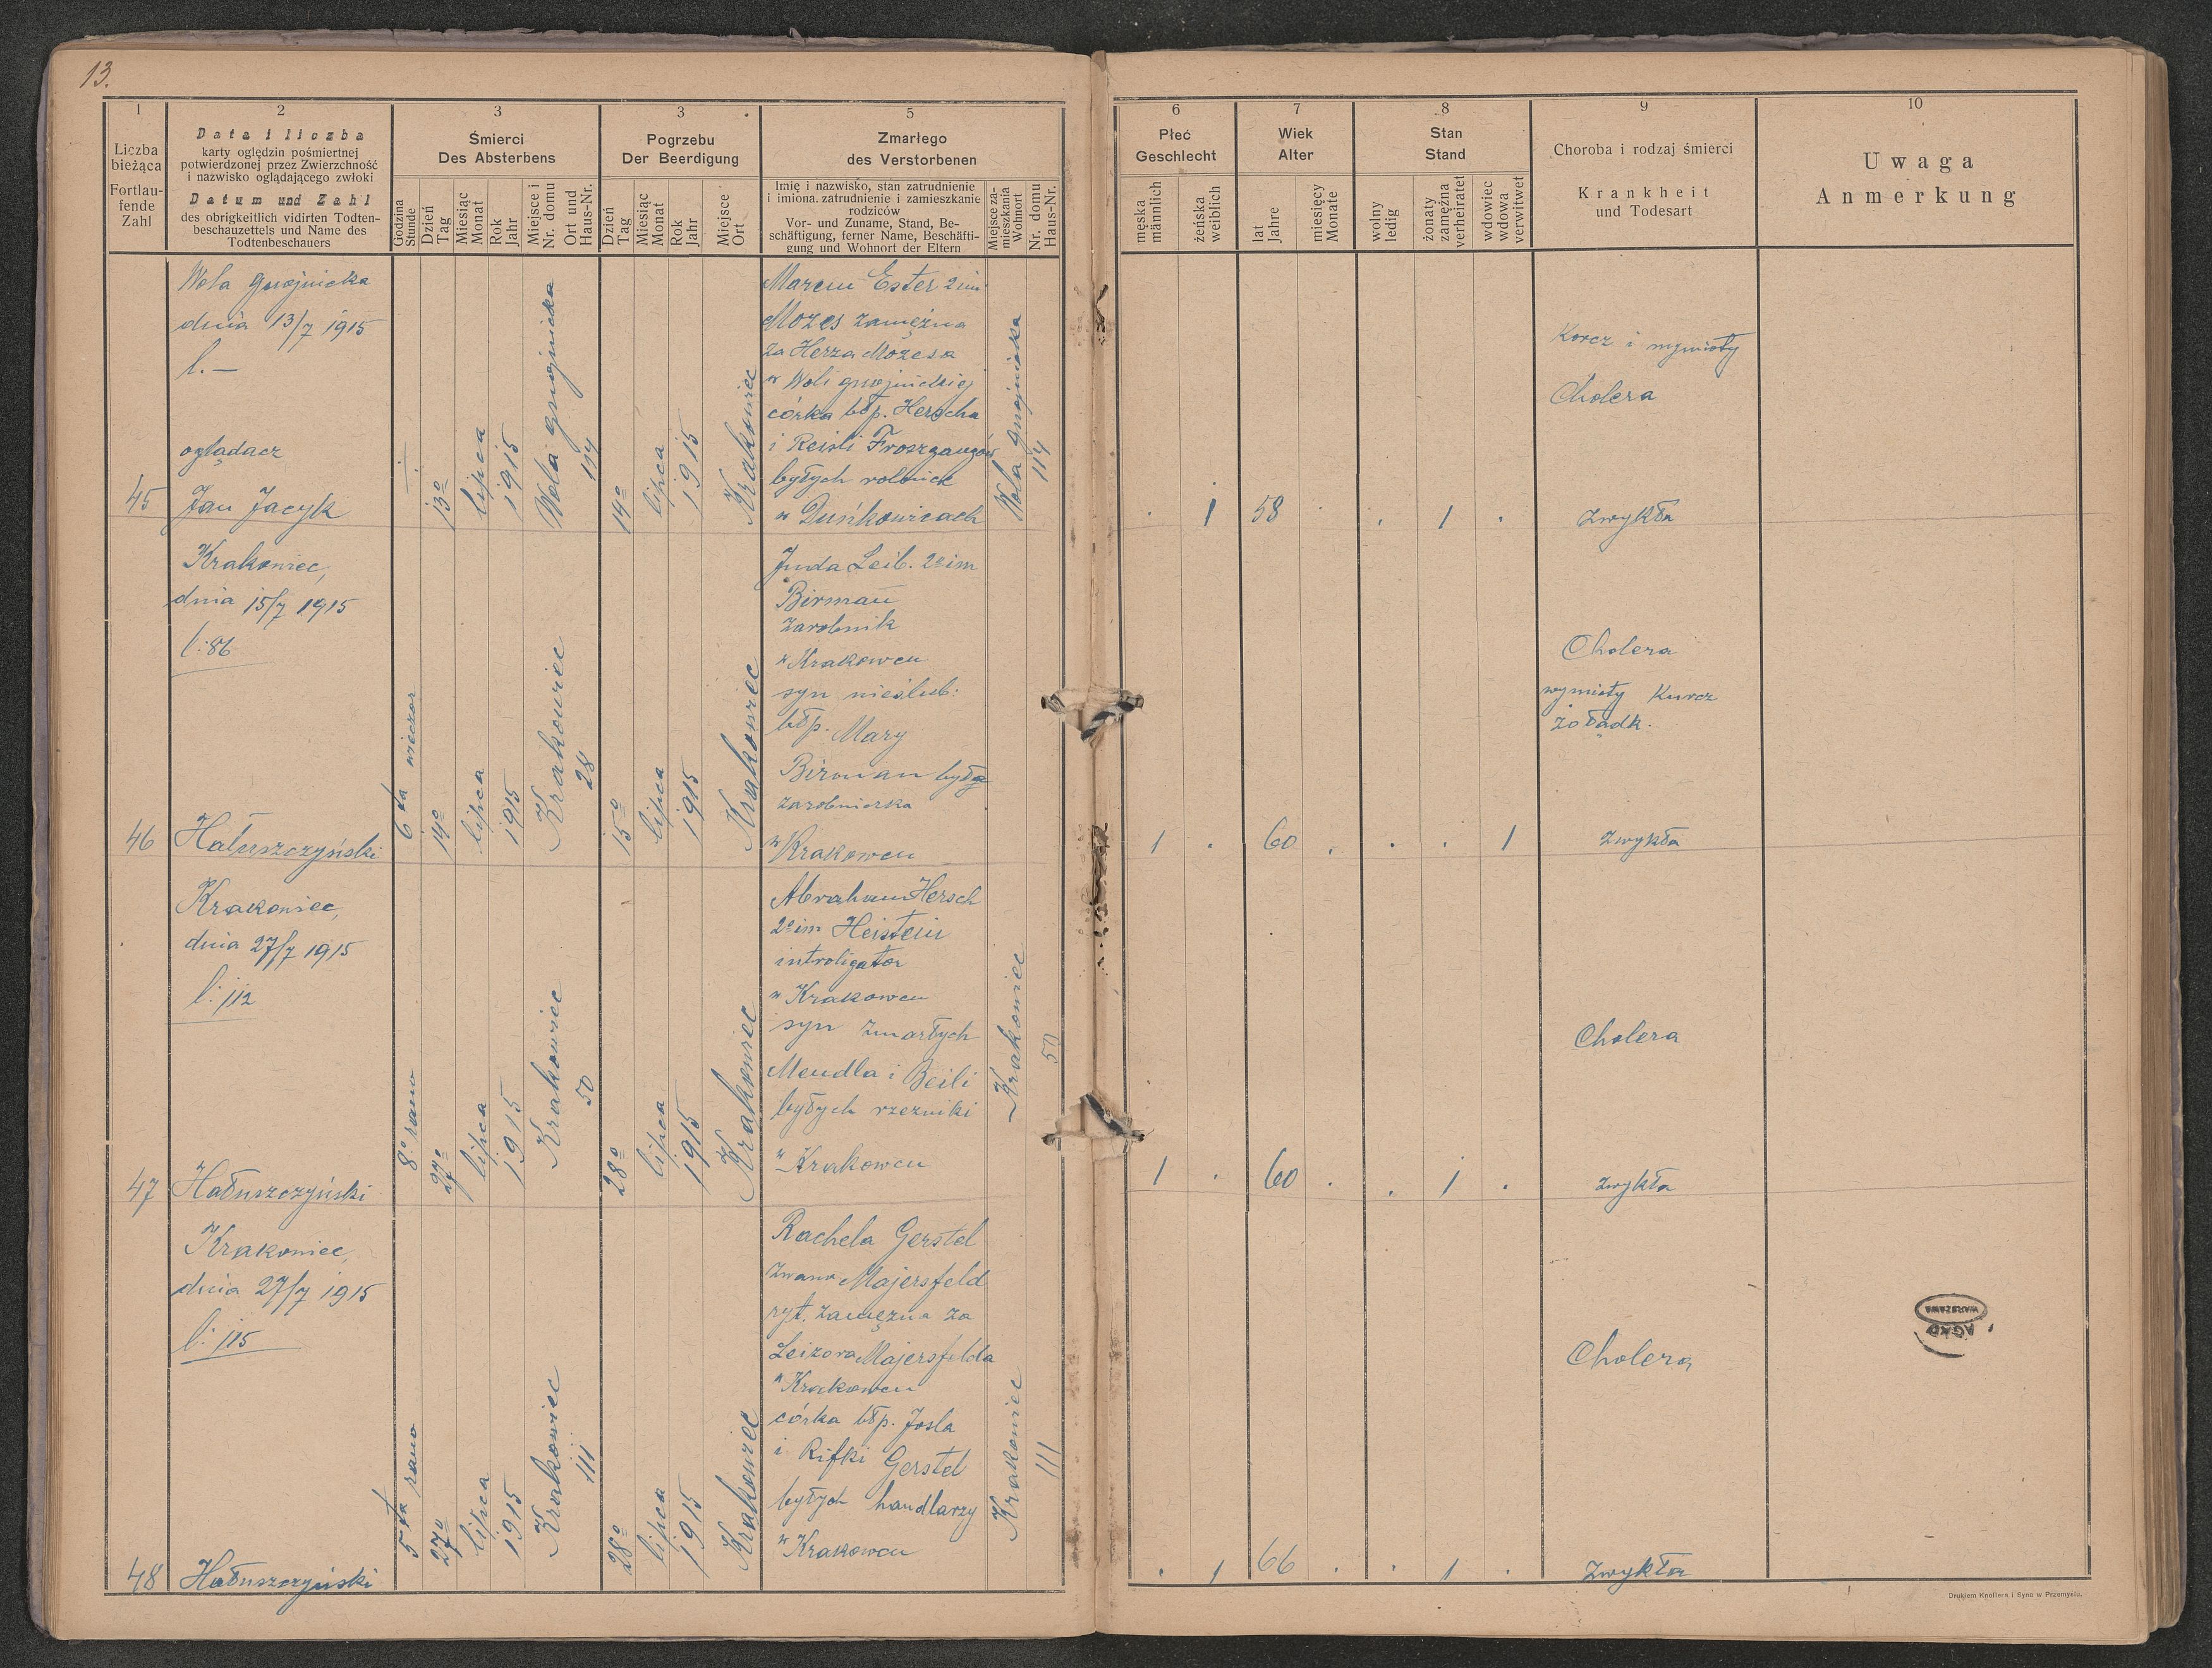 13.
1
Liczba
bieżąca
Fortlau-
fende
Zahl
2
Data i liczba
karty oględzin pośmiertnej
potwierdzonej przez Zwierzchność
i nazwisko oglądającego zwłoki
Datum und Zahl
des obrigkeitlich vidirten Todten-
beschauzettels und Name des
Todtenbeschauers
3
Śmierci
Des Absterbens
Godzina
Stunde
Dzień
Tag
Miesiąc
Monat
Rok
Jahr
Miejsce i
Nr. domu
Ort und
Haus-Nr.
3
Pogrzebu
Der Beerdigung
Dzień
Tag
Miesiąc
Monat
Rok
Jahr
Miejsce
Ort
5
Zmarłego
des Verstorbenen
Imię i nazwisko, stan zatrudnienie
i imiona. zatrudnienie i zamieszkanie
rodziców
Vor- und Zuname, Stand, Be-
schäftigung, ferner Name, Beschäfti-
gung und Wohnort der Eltern
Miejsce za-
mieszkania
Wohnort
Nr. domu
Haus-Nr.
6
Płeć
Geschlecht
męska
männlich
żeńska
weiblich
7
Wiek
Alter
lat
Jahre
miesięcy
Monate
8
Stan
Stand
wolny
ledig
żonaty
zamężna
verheiratet
wdowiec
wdowa
verwitwet
9
Choroba i rodzaj śmierci
Krankheit
und Todesart
10
Uwaga
Anmerkung
45
Wola gnojnicka
dnia 13/7 1915
l. —
oglądacz
Jan Jacyk
13º
lipca
1915
Wola gnojnicka
114
14º
lipca
1915
Krakowiec
Marcus Ester 2im
Mozes zamężna
za Herza Mozesa
w Woli gnojnickiej
córka błp. Herscha
i Reisli
byłych rolnick
w Duńkowicach
Wola gnojnicka
114
. 1 58 . . 1 .
Korcz i wymioty
Cholera
zwykła
46
Krakowiec,
dnia 15/7 1915
l: 86
Hałuszczyński
6ta wieczor
14º
lipca
1915
Krakowiec
28
15º
lipca
1915
Krakowiec
Juda Leib. 2eim
Birman
zarobnik
w Krakowcu
syn nieślub:
błp. Mary
Birman była
zarobniczka
w Krakowcu
1 . 60 . . . 1
Cholera
wymioty Kurcz
żołądk.
zwykła
47
Krakowiec,
dnia 27/7 1915
l: 112
Hałuszczyński
8º rano
27º
lipca
1915
Krakowiec
50
28º
lipca
1915
Krakowiec
Abraham Hersch
2eim Heistein
introligator
w Krakowcu
syn zmarłych
Mendla i Beili
byłych rzezniki
w Krakowcu
Krakowiec
50
1 . 60 . . 1 .
Cholera
zwykła
48
Krakowiec,
dnia 27/7 1915
l: 115
Hałuszczyński
5ta rano
27º
lipca
1915
Krakowiec
111
28º
lipca
1915
Krakowiec
Rachela Gerstel
zwana Majersfeld
ryt. zamężna za
Leizora Majersfelda
w Krakowcu
córka błp. Josla
i Rifki Gerstel
byłych handlarzy
w Krakowcu
Krakowiec
111
. 1 66 . . 1 .
Cholera
zwykła
AGAD
WARSZAWA
Drukiem Knollera i Syna w Przemyślu.